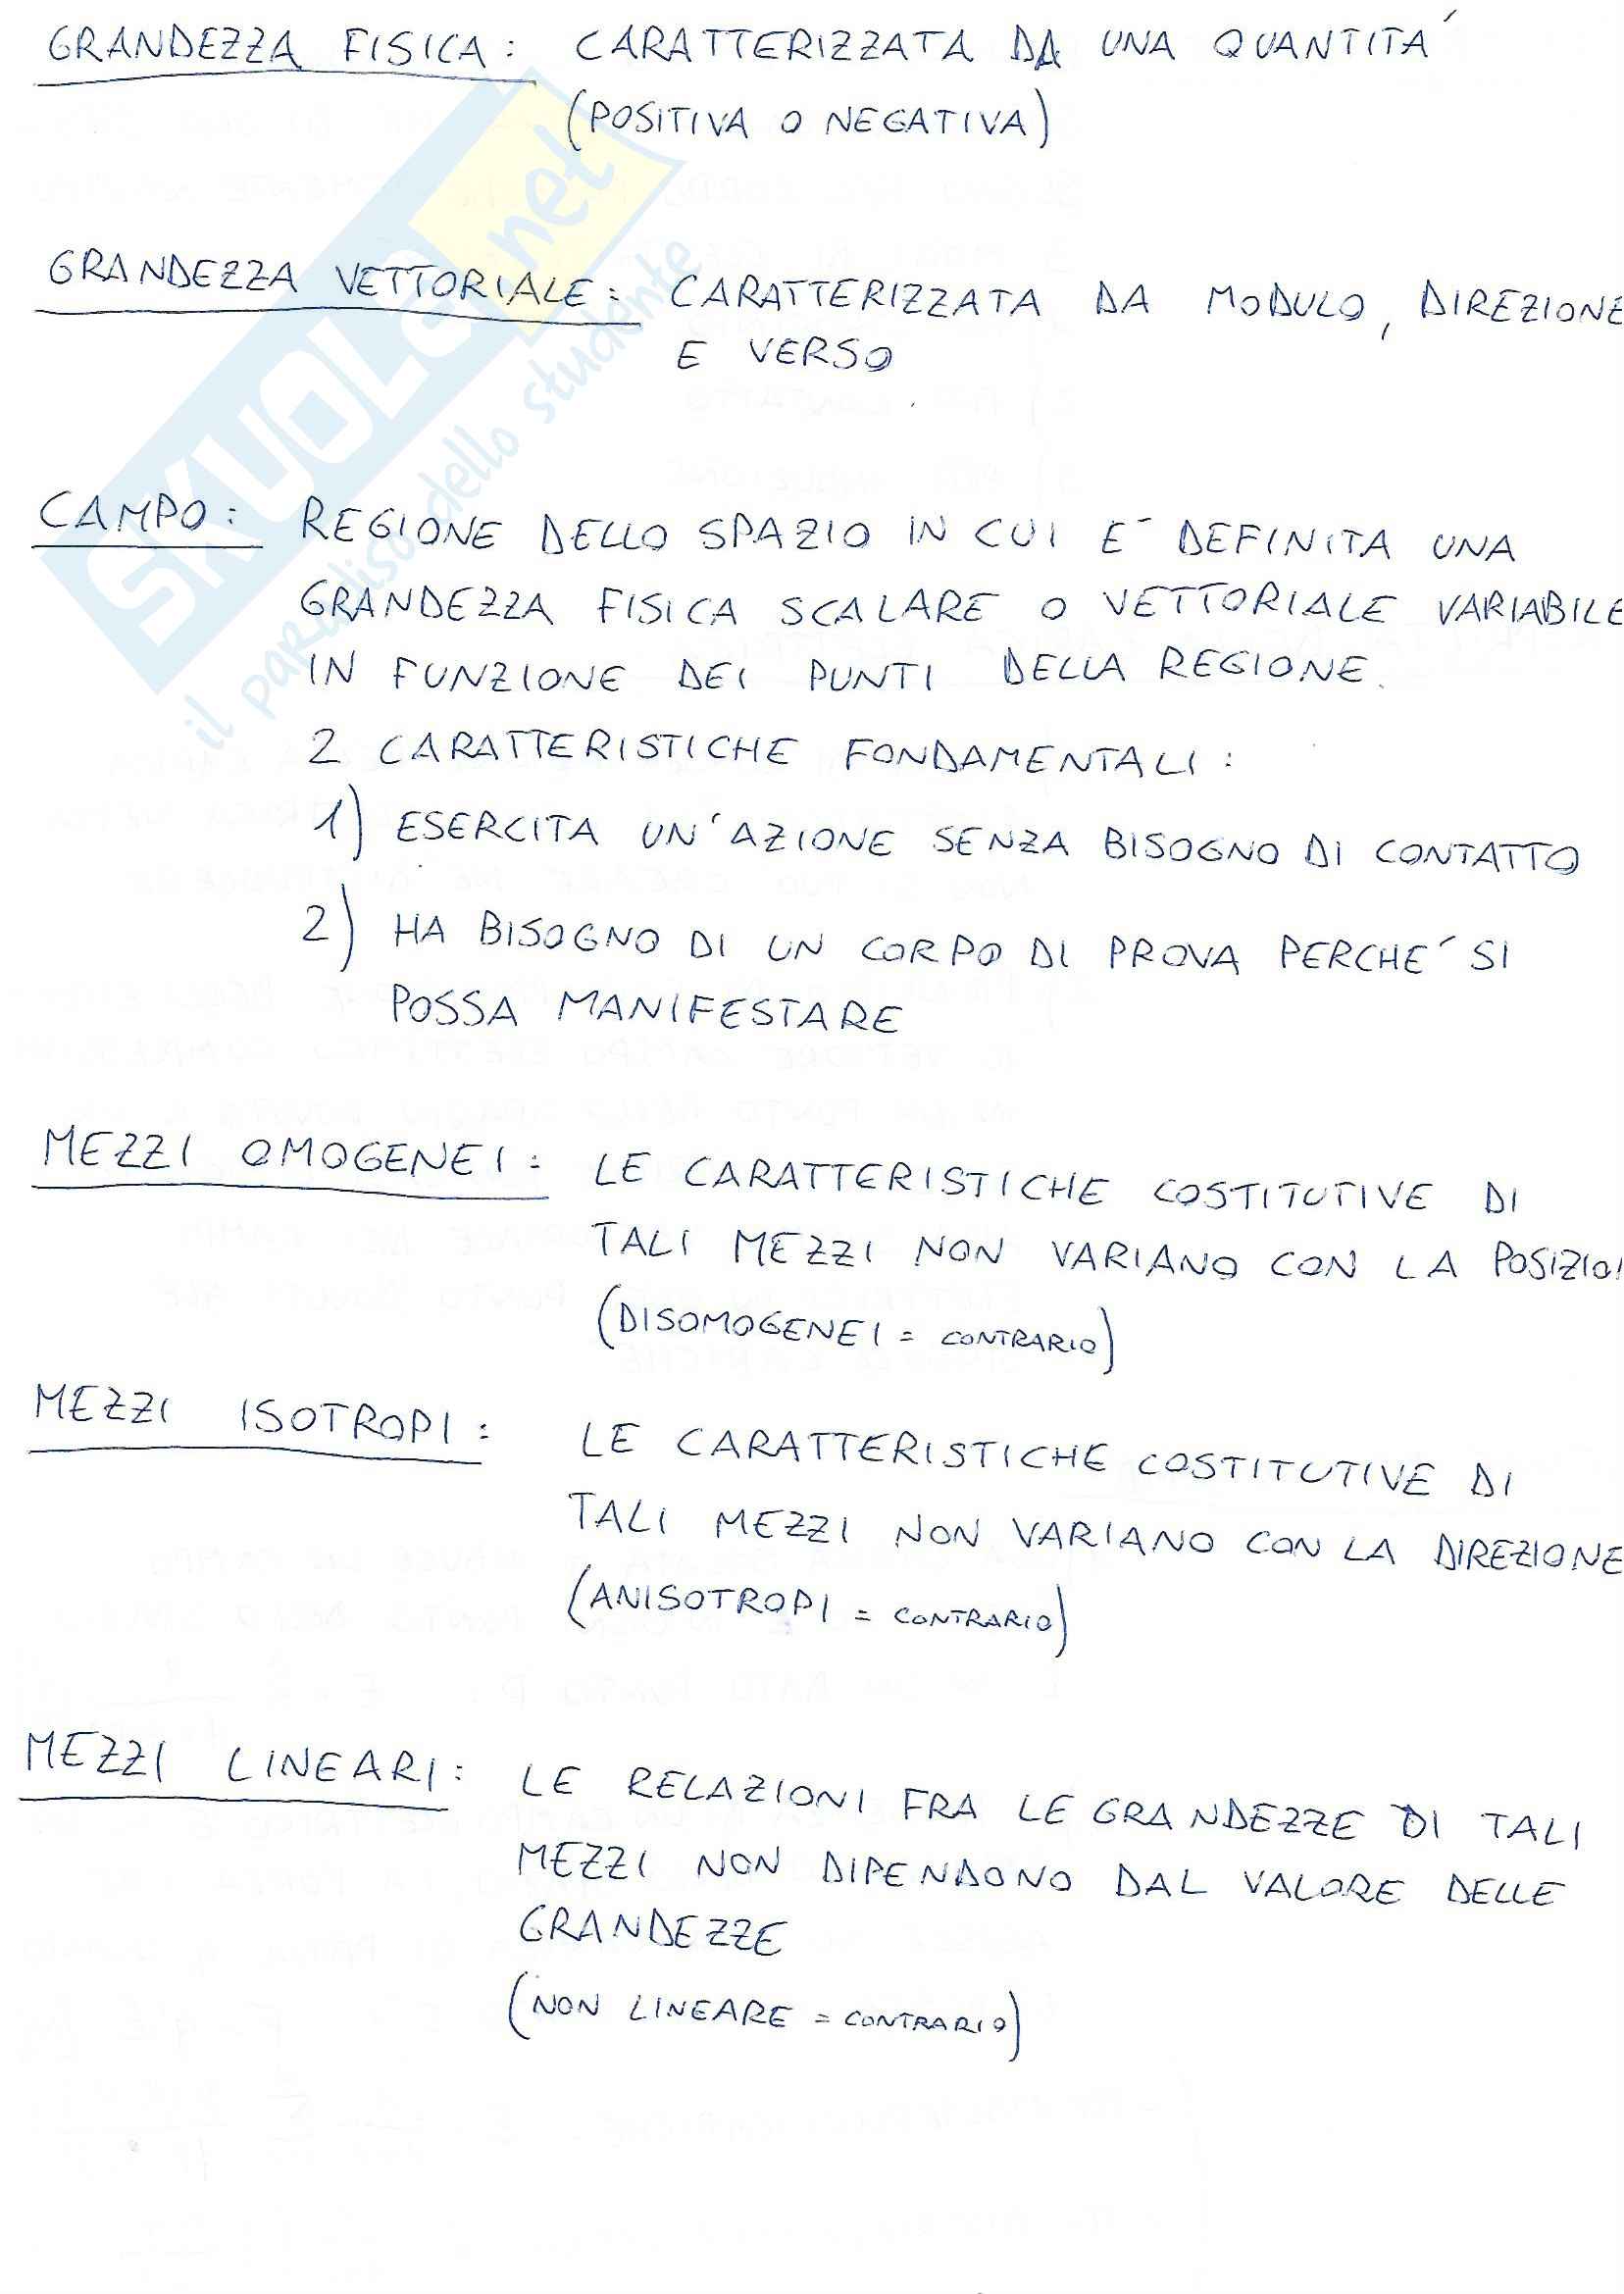 GRANDEZZA FISICA: CARATTERIZZATA DA UNA QUANTITA´
(POSITIVA O NEGATIVA)
GRANDEZZA VETTORIALE: CARATTERIZZATA DA MODULO, DIREZIONE
E VERSO
CAMPO: REGIONE DELLO SPAZIO IN CUI E´ DEFINITA UNA
GRANDEZZA FISICA SCALARE O VETTORIALE VARIABILE
IN FUNZIONE DEI PUNTI DELLA REGIONE.
2 CARATTERISTICHE FONDAMENTALI:
1) ESERCITA UN'AZIONE SENZA BISOGNO DI CONTATTO
2) HA BISOGNO DI UN CORPO DI PROVA PERCHE´ SI
POSSA MANIFESTARE
MEZZI OMOGENEI: LE CARATTERISTICHE COSTITUTIVE DI
TALI MEZZI NON VARIANO CON LA POSIZIO
(DISOMOGENEI = CONTRARIO)
MEZZI ISOTROPI: LE CARATTERISTICHE COSTITUTIVE DI
TALI MEZZI NON VARIANO CON LA DIREZIONE
(ANISOTROPI = CONTRARIO)
MEZZI LINEARI: LE RELAZIONI FRA LE GRANDEZZE DI TALI
MEZZI NON DIPENDONO DAL VALORE DELLE
GRANDEZZE
(NON LINEARE = CONTRARIO)
SKUOLA.net
il paradiso dello studente